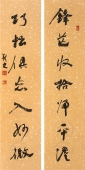 锋芒收拾归平淡
巧拙俱忘入妙微